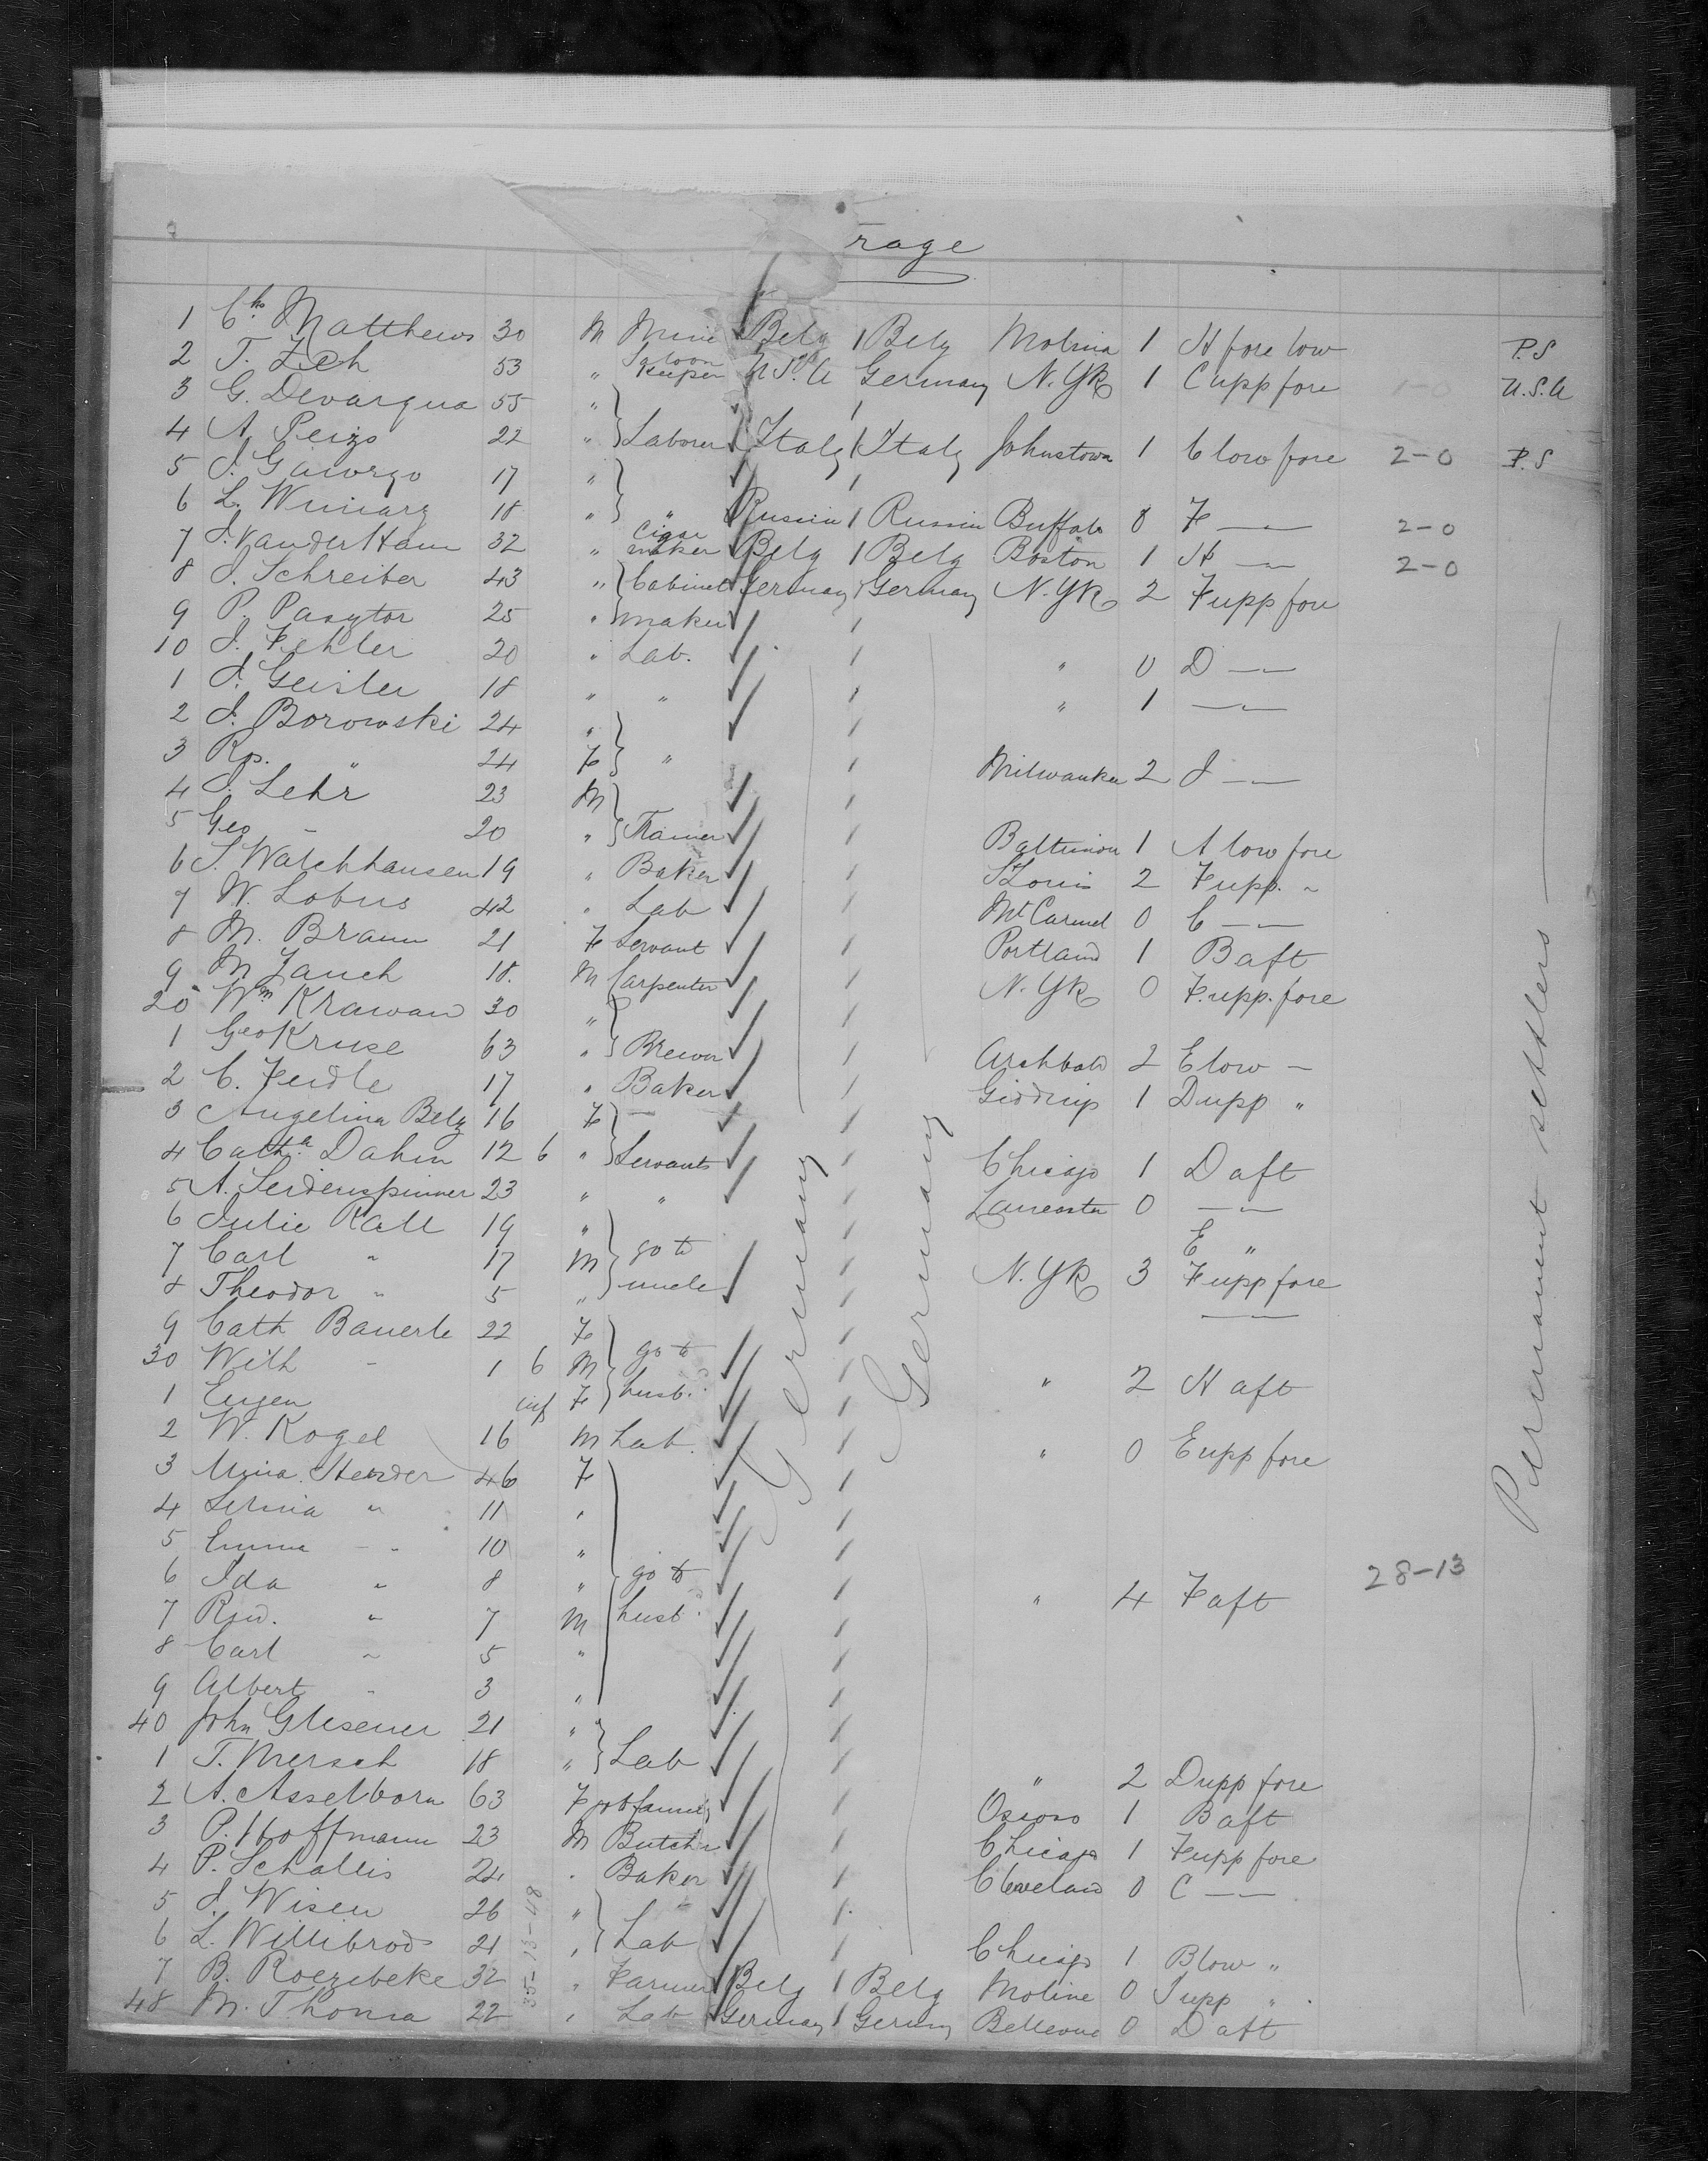 rage
1 Chs Matthews 30 M Belg Belg 1 H fore low P.S
2 T. Zeh 53 " Saloon Keeper U.S.A Germany N. Yk 1 C upp fore 1-0 U.S.A
3 G. Devarqua 55 "
4 A. Peizo 22 " Laborer Italy Italy Johnstown 1 C low fore 2-0 P.S
5 17 "
6 L. 18 " " Russia Russia Buffalo 0 F —"— 2-0
7 J. VanderHam 32 " Cigar maker Belg Belg Boston 1 H —"— 2-0
8 J. Schreiber 43 " Cabinet Germany Germany N. Yk 2 F upp fore
9 P. Pasytor 25 " maker
10 J. Fehler 20 " Lab. " 0 D —"—
1 J. Geisler 18 " " " 1 —"—
2 J. Borowski 24 "
3 Ros. " 24 F " Milwaukee 2 J —"—
4 J. Lehr 23 M
5 Geo " 20 " Baltimore 1 A low fore
6 S. Walchhausen 19 " Baker St Louis 2 F upp. "
7 W. Lobus 42 " Lab Mt Carmel 0 C —"—
8 M. Braun 21 F Servant Portland 1 B aft
9 M. Zauch 18. M Carpenter N. Yk 0 F. upp. fore
20 Wm Krawan 30 "
1 Geo Kruse 63 " Brewer Archbald 2 E low "
2 C. Feidle 17 " Baker Giddings 1 D upp "
3 Angelina Belz 16 F —
4 Catha Dahm 12 6 " Servants Chicago 1 D aft
5 A. Seidenspinner 23 " " Lancaster 0 —"—
6 Julie Rall 19 " E "
7 Carl " 17 M go to N. Yk 3 F upp fore
8 Theodor " 5 " uncle —"—
9 Cath Bauerle 22 F
30 Wilh " 1 6 M go to " 2 H aft
1 Eugen inf F husb.
2 W. Kogel 16 M Lab. " 0 E upp fore
3 46 F
4 " 11 "
5 Emma " 10 "
6 Ida " 8 " go to " 4 F aft 28-13
7 " 7 M husb.
8 Carl " 5 "
9 Albert " 3 "
40 John Glesener 21 "
1 T. Mersch 18 " Lab " 2 D upp fore
2 A. Asselborn 63 F go to family 1 B aft
3 P. Hoffmann 23 M Butcher Chicago 1 F upp fore
4 P. Schallis 24 " Baker Cleveland 0 C —"—
5 J. Wisen 26 " "
6 L. Willibrod 21 " Lab Chicago 1 B low "
7 B. 32 " Farmer Belg Belg Moline 0 upp "
48 M. Thoma 22 " Lab Germany Germany Bellevue 0 D aft
Germany
Germany
Permanent settlers